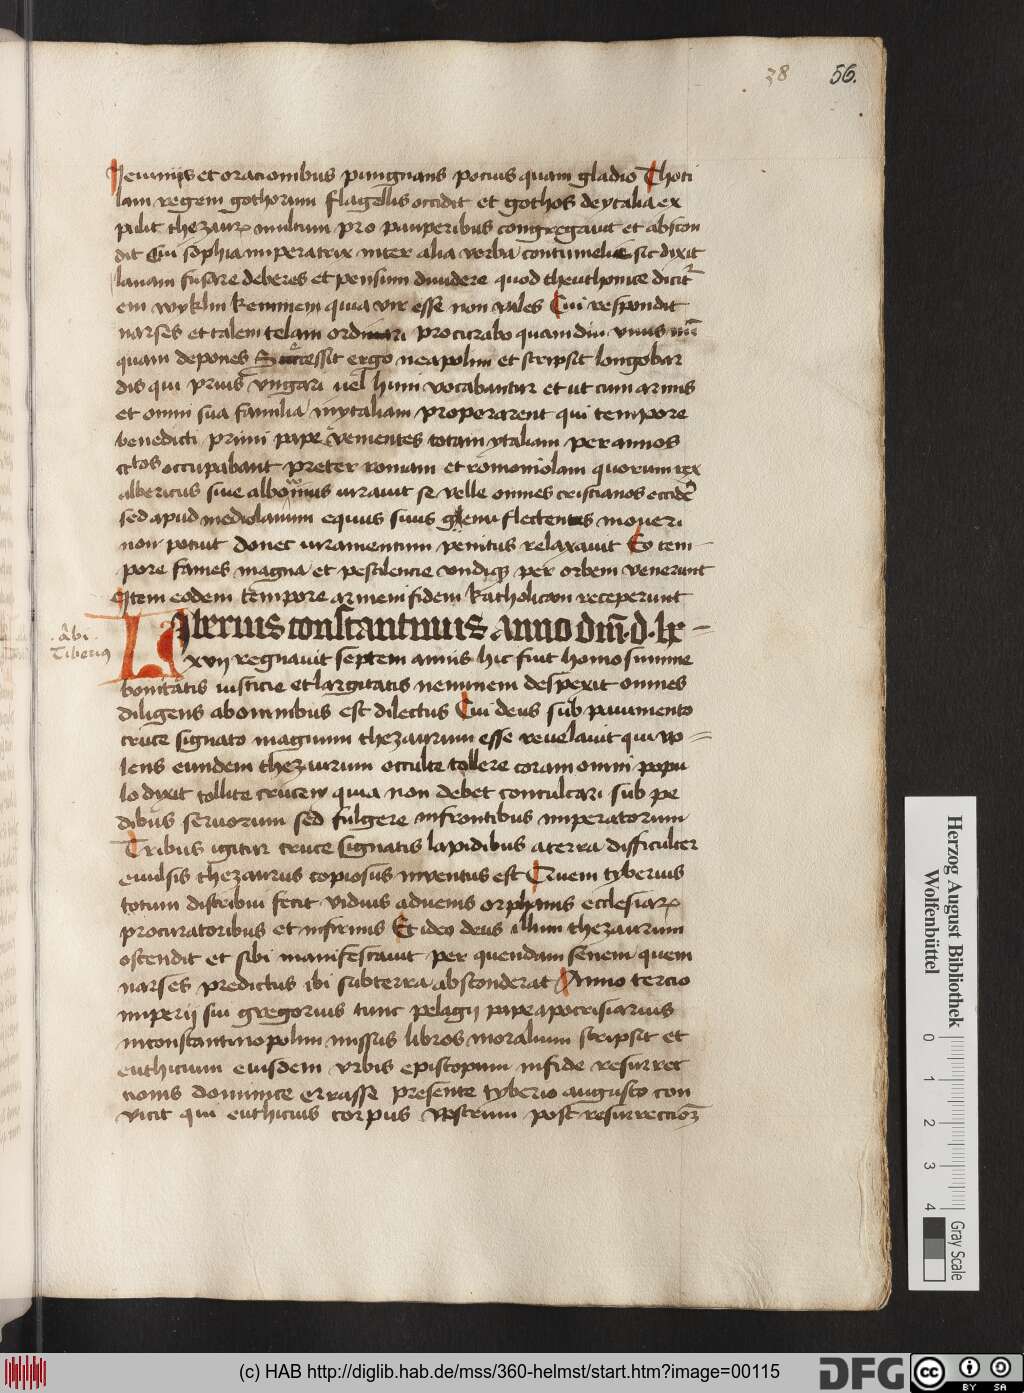 38 56.
Ieiuniis et oracionibus pungnans pocius quam gladio Thoti
lam regem gothorum flagellis occidit et gothos de ytalia ex
pulit thezaurꝝ multum pro pauperibus congregauit et abscon
dit Cui sophia imperatrix inter alia verba contumelie sic dixit
lanam fusare deberes et pensum diuidere quod theuthonice dicitr̄
em wyklin kemmem quia vir esse non vales Cui respondit
narses et talem telam ordinari procurabo quamdiu viuis
quam depones Successit ergo neapolim et scripsit longobar
dis qui prius vngari uel huni vocabantur et ut cum armis
et omni sua familia in ytaliam properarent qui tempore
benedicti primi pape venientes totam ytaliam per annos
occupabant preter romam et romoniolam quorum rex
albericus siue iurauit se velle omnes cristianos
sed apud mediolanum equus suus genu flectens moueri
non potuit donec iuramentum penitus relaxauit Eo tem
pore fames magna et pestilencie vndiqꝫ per orbem venerunt
Item eodem tempore armeni fidem katholicam receperunt
Tiberius constantinus anno dm̄ · d · lx
xvij regnauit septem annis hic fuit homo summe
Tiberiꝯ
bonitatis iusticie et largitatis neminem despexit omnes
diligens ab omnibus est dilectus Cui deus sub pauimento
cruce signato magnum thezaurum esse reuelauit qui vo
lens eundem thezaurum occulte tollere coram omni popu
lo dixit tollite crucem quia non debet conculcari sub pe
dibus seruorum sed fulgere in frontibus imperatorum
Tribus igitur cruce signatis lapidibus a terra difficulter
euulsis thezaurus copiosus inuentus est Quem tyberius
totum distribui fecit viduis aduenis orphanis ecclesiarꝝ
procuratoribus et infirmis Et ideo deus illum thezaurum
ostendit et sibi manifestauit per quendam senem quem
narses predictus ibi subterra absconderat Anno tercio
imperij sui gregorius tunc pelagij pape apocrisiarius
in constantinopolim missus libros moralium scripsit et
euthicium eiusdem vrbis episcopum in fide resurrec
cionis dominice errasse presente tyberio augusto con
uicit qui euthicius corpus nostrum post resurreccioꝫ
Herzog August Bibliothek
Wolfenbüttel
0 1 2 3 4
Gray Scale
(c) HAB http://diglib.hab.de/mss/360-helmst/start.htm?image=00115
DFG
cc BY SA